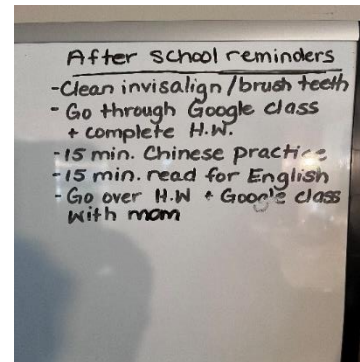 After school reminders
-Clean invisalign/brush teeth
- Go through Google class
+ complete H.W.
-15 min. Chinese practice
-15 min. read for English
- Go over H.W + Google class
with mom